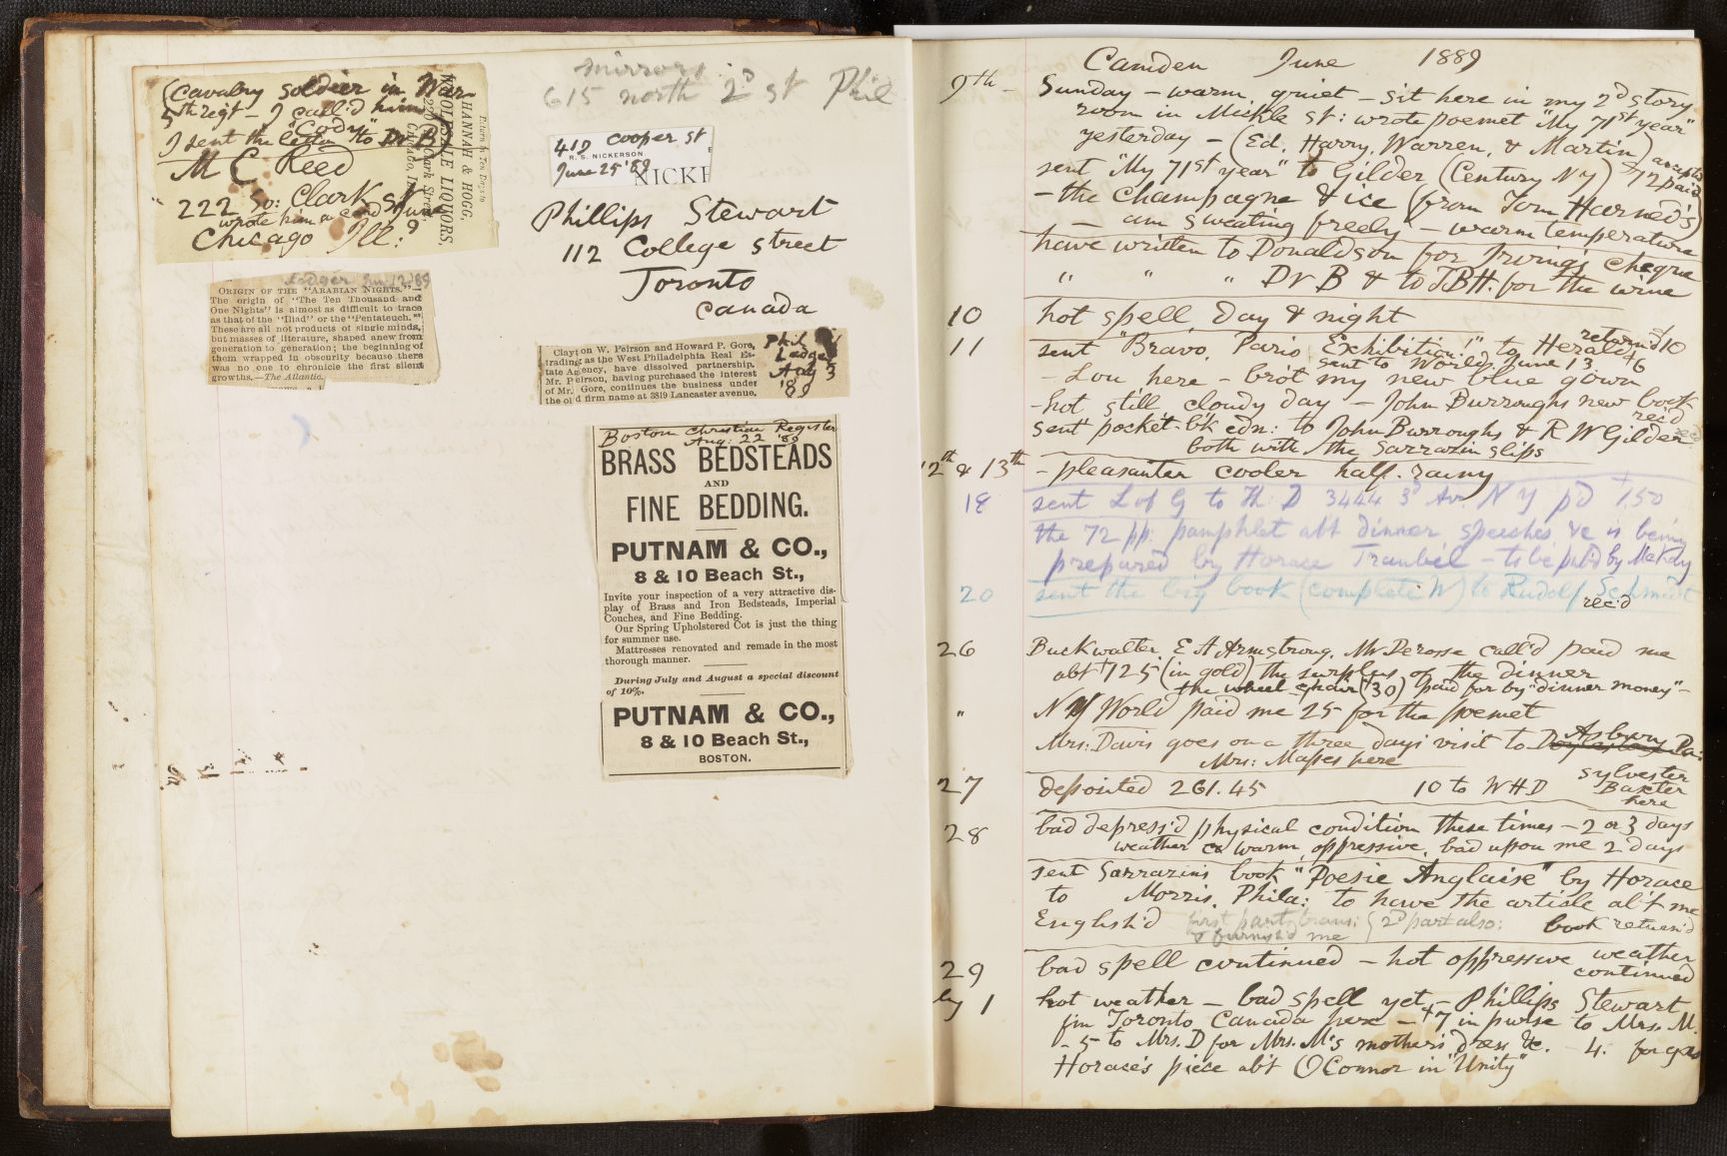 (Cavalry soldier in War
5th regt - I call'd him
"Cody"
I sent the letter to Dr B)
M C Reed
222 So: Clark St
wrote him a card June 9
Chicago Ill:
Return in Ten Days to
HANNAH & HOGG,
WHOLESALE LIQUORS,
222 Clark Street,
CHICAGO, ILL
Ledger Jan 12 '89
ORIGIN OF THE "ARABIAN NIGHTS."—
The origin of "The Ten Thousand and
One Nights" is almost as difficult to trace
as that of the "Iliad" or the "Pentateuch."
These are all not products of single minds,
but masses of literature, shaped anew from
generation to generation; the beginning of
them wrapped in obscurity because there
was no one to chronicle the first silent
growths.—The Atlantic.
mirrors
615 north 2d st Phil
419 Cooper st
R. S. NICKERSON
June 25 '89
NICKE
Phillips Stewart
112 College street
Toronto
Canada
Clayton W. Peirson and Howard P. Gore,
trading as the West Philadelphia Real Es-
tate Agency, have dissolved partnership.
Mr. Peirson, having purchased the interest
of Mr. Gore, continues the business under
the old firm name at 3819 Lancaster avenue.
Phil
Ledger
Aug 3
'89
Boston Christian Register
Aug: 22 '89
BRASS BEDSTEADS
AND
FINE BEDDING.
PUTNAM & CO.,
8 & 10 Beach St.,
Invite your inspection of a very attractive dis-
play of Brass and Iron Bedsteads, Imperial
Couches, and Fine Bedding.
Our Spring Upholstered Cot is just the thing
for summer use.
Mattresses renovated and remade in the most
thorough manner.
During July and August a special discount
of 10%.
PUTNAM & CO.,
8 & 10 Beach St.,
BOSTON.
Camden June 1889
9th - Sunday - warm quiet - sit here in my 2d story
room in Mickle st: wrote poemet "My 71st year"
yesterday - (Ed, Harry, Warren, & Martin)
sent "My 71st year" to Gilder (Century N Y) accepts $12 paid
- the Champagne & ice (from Tom Harned's)
- am sweating freely - warm temperature
have written to Donaldson for Irving's cheque
" " " Dr B & to JBH. for the wine
10 hot spell, day & night
11 sent "Bravo, Paris Exhibition!" to Herald $10 return'd
sent to World June 13
- Lou here - bro't my new blue gown 46
- hot still, cloudy day - John Burroughs new book rec'd
sent pocket-b'k edn: to John Burroughs & R W Gilder rec'd
both with the Sarrazin slips
12th & 13th - pleasanter cooler half-rainy
18 sent L of G to Th D 3444 3d Av: N Y p'd 1.50
the 72 pp: pamphlet abt dinner, speeches &c is being
prepared by Horace Traubel - to be pub'd by McKay
20 sent the big book (complete W) to Rudolf Schmidt
rec'd
26 Buckwalter, E A Armstrong, Mr Derosse call'd paid me
abt $125 (in gold) the surplus of the dinner
the wheel chair ($30) paid for by "dinner money" -
" N Y World paid me 25 for the poemet
Mrs: Davis goes on a three days' visit to Asbury Pa:
Mrs: Mapes here
27 deposited 261.45 10 to W H D Sylvester
Baxter
here
28 bad depress'd physical condition these times - 2 or 3 days
weather warm, oppressive, bad upon me 2 days
sent Sarrazin's book "Poesie Anglaise" by Horace
to Morris, Phila: to have the article ab't me
English'd first part trans: & furnish'd me } 2d part also: book return'd
29 bad spell continued - hot oppressive weather
continued
ly 1 hot weather - bad spell yet - Phillips Stewart
fm Toronto Canada here - $7 in purse to Mrs. M.
- 5 to Mrs. D for Mrs. M's mother's dress &c. - 4. for gas
Horace's piece ab't O'Connor in "Unity"